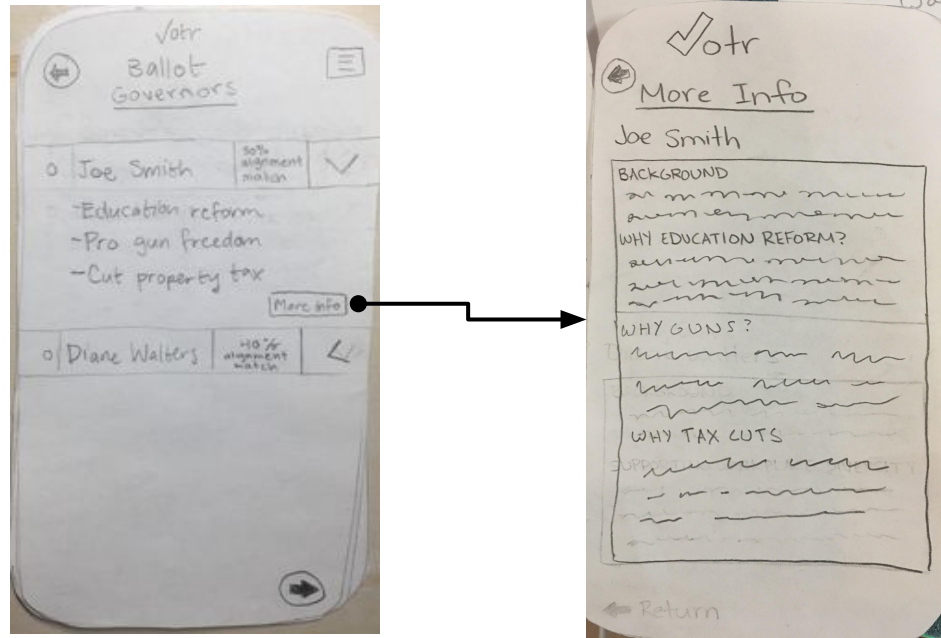 Votr
Ballot
Governors
O Joe Smith 50% alignment match
-Education reform
-Pro gun freedom
-Cut property tax
More info
O Diane Walters 40% alignment match
Votr
More Info
Joe Smith
BACKGROUND
WHY EDUCATION REFORM?
WHY GUNS?
WHY TAX CUTS
Return